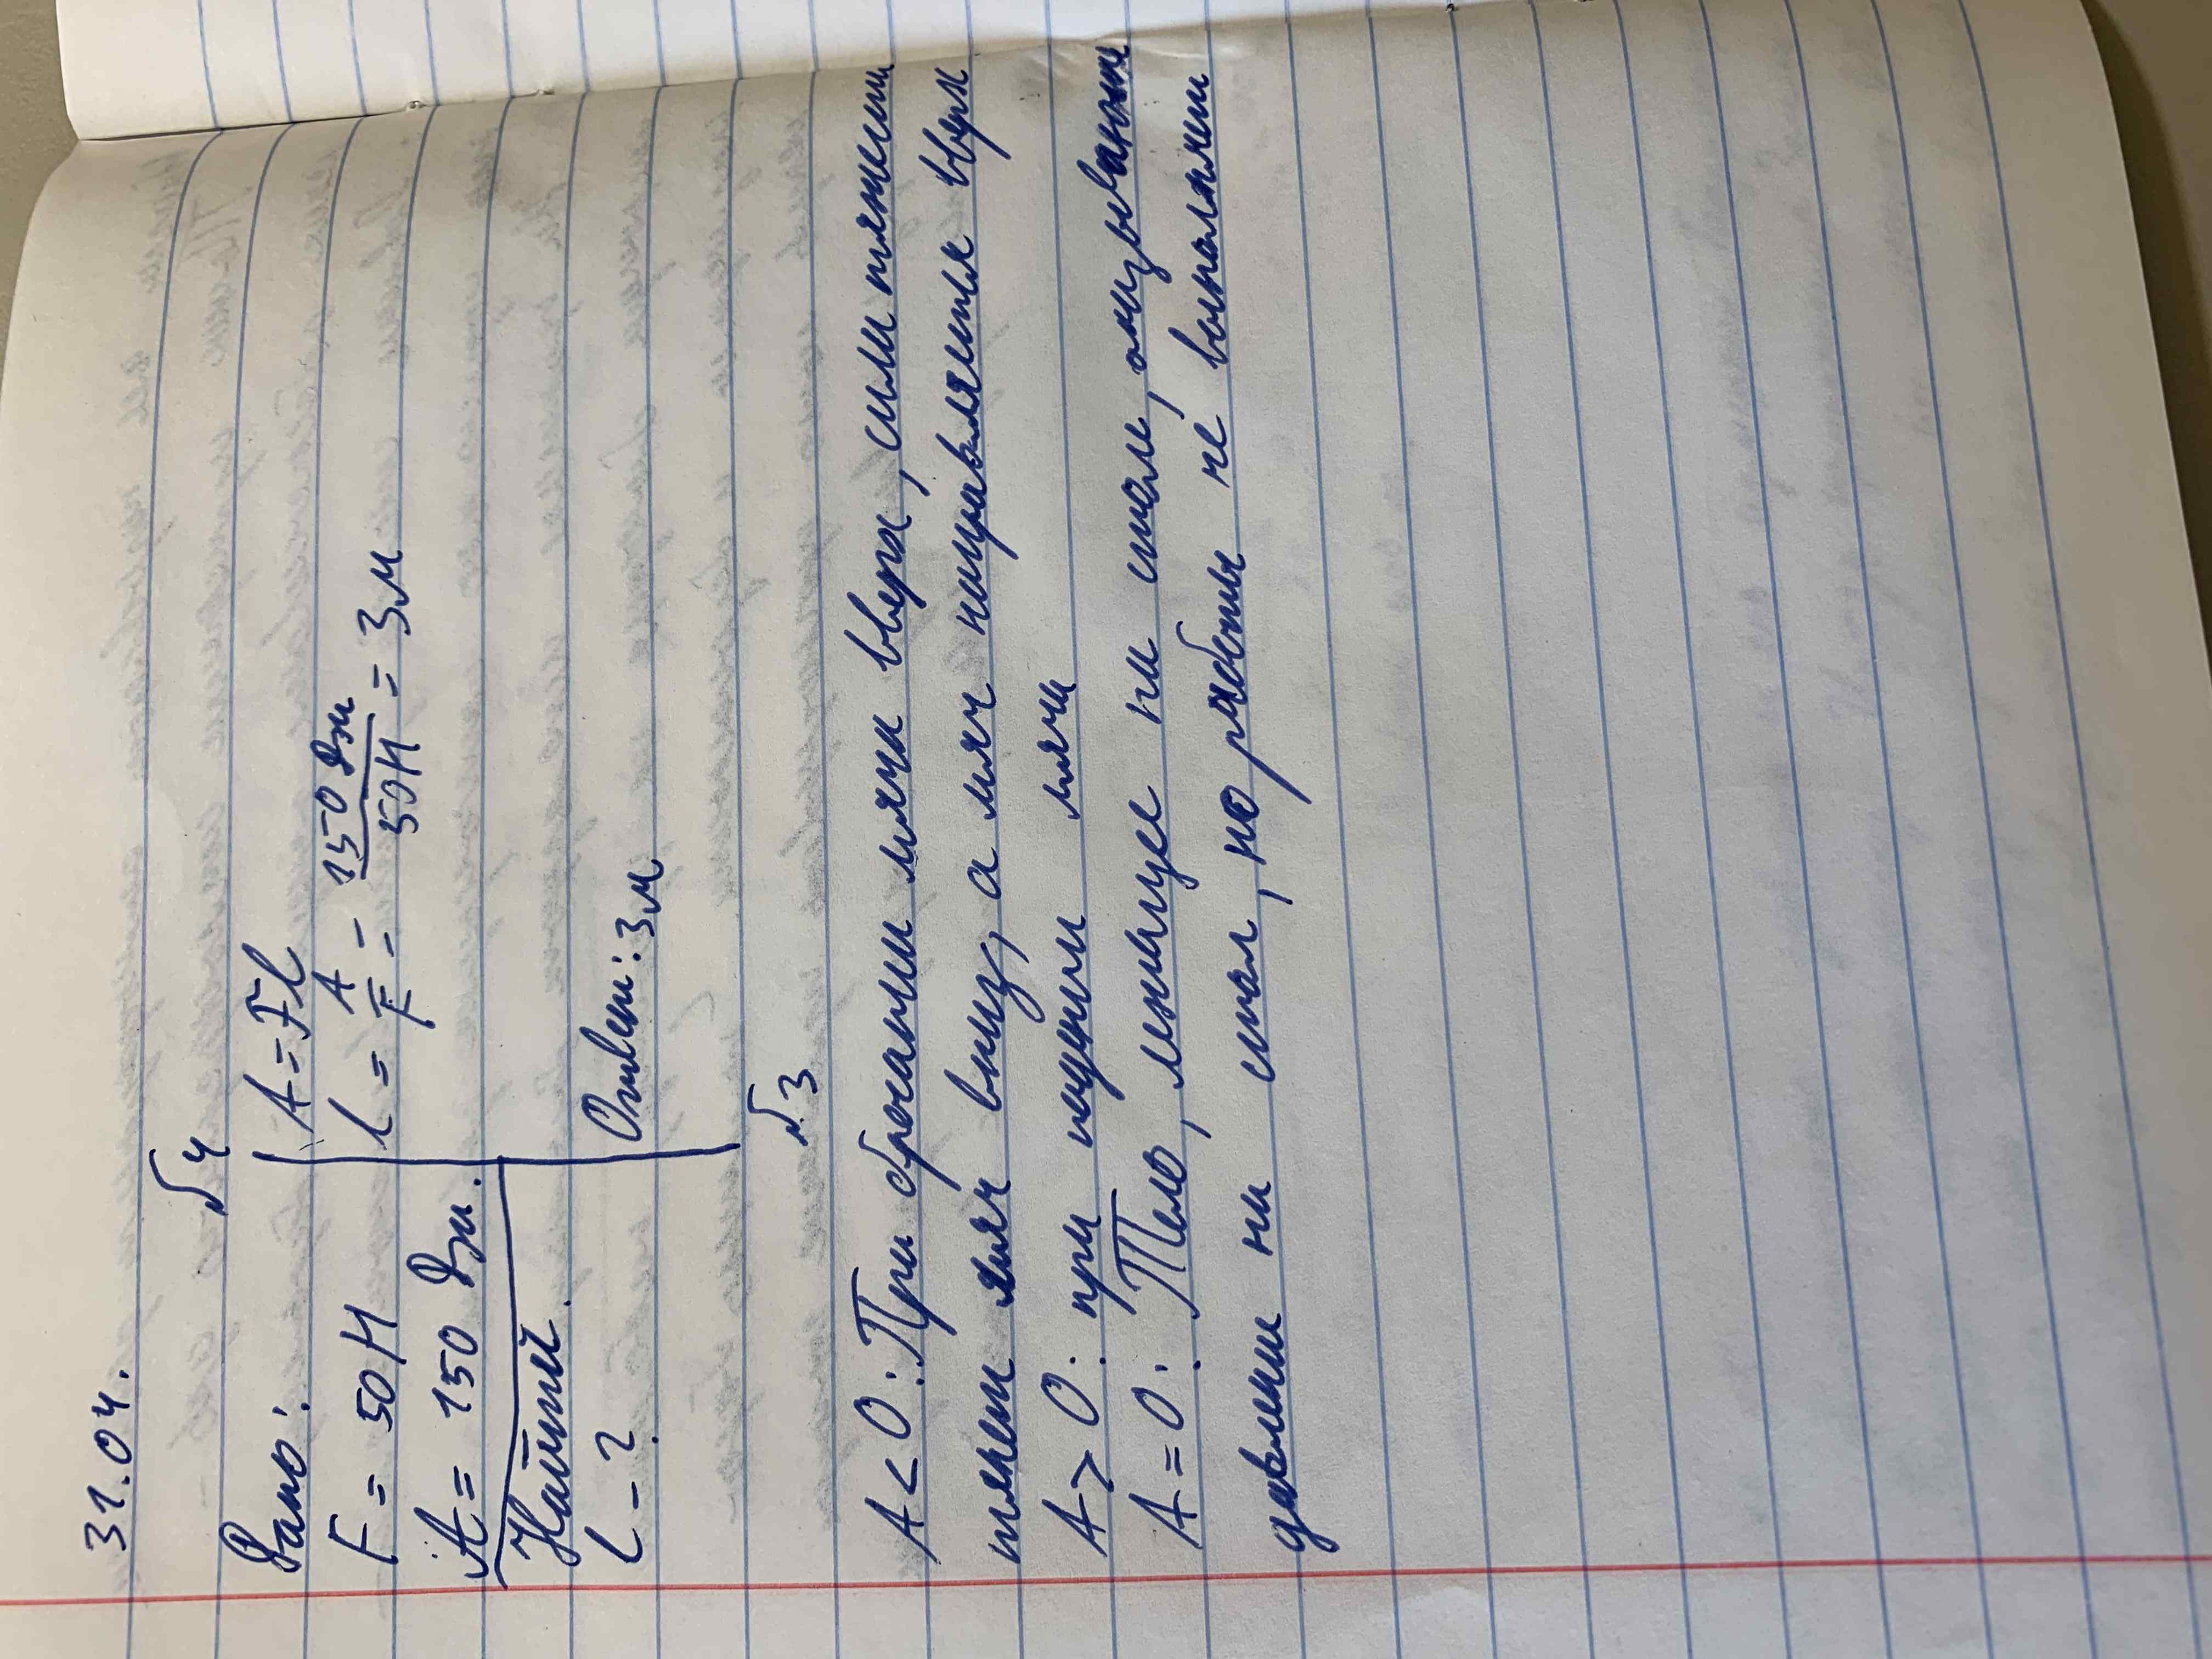 31.04.
№4
Дано:
F = 50 Н
A = 150 Дж.
Найти:
l - ?
A = Fl
l = A/F = 150 Дж/50 Н = 3 м
Ответ: 3 м
№3
A < 0: При бросании мяча вверх, сила тяжести
тянет мяч вниз, а мяч направляется вверх
A > 0: при падении мяча
A = 0: Тело, лежащее на столе, оказывает
давление на стол, но работы не выполняет